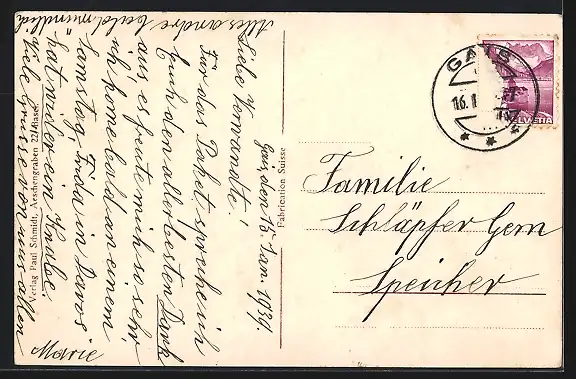 Gais, den 15. Jan. 1939
Liebe Verwandte!
Für das Paket spreche ich
Euch den allerbesten Dank
aus, es freute mich so sehr
ich kome bald an einem
Samstag, Frida in Davos
hat wieder ein Knabe.
Viele Grüsse von uns allen
Marie
Alles andre bald mündlich
Fabrication Suisse
Verlag Paul Schmidt, Aeschengraben 22, Basel
GAIS
16.1
HELVETIA
Familie
Schläpfer Gem
Speicher